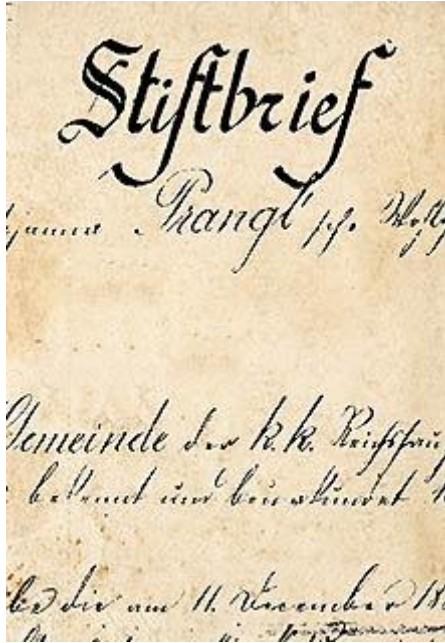 Stiftbrief
Prangl'sche
Gemeinde der k. k. Reichshau
bekennt und beurkundet
be die am 11. December 18